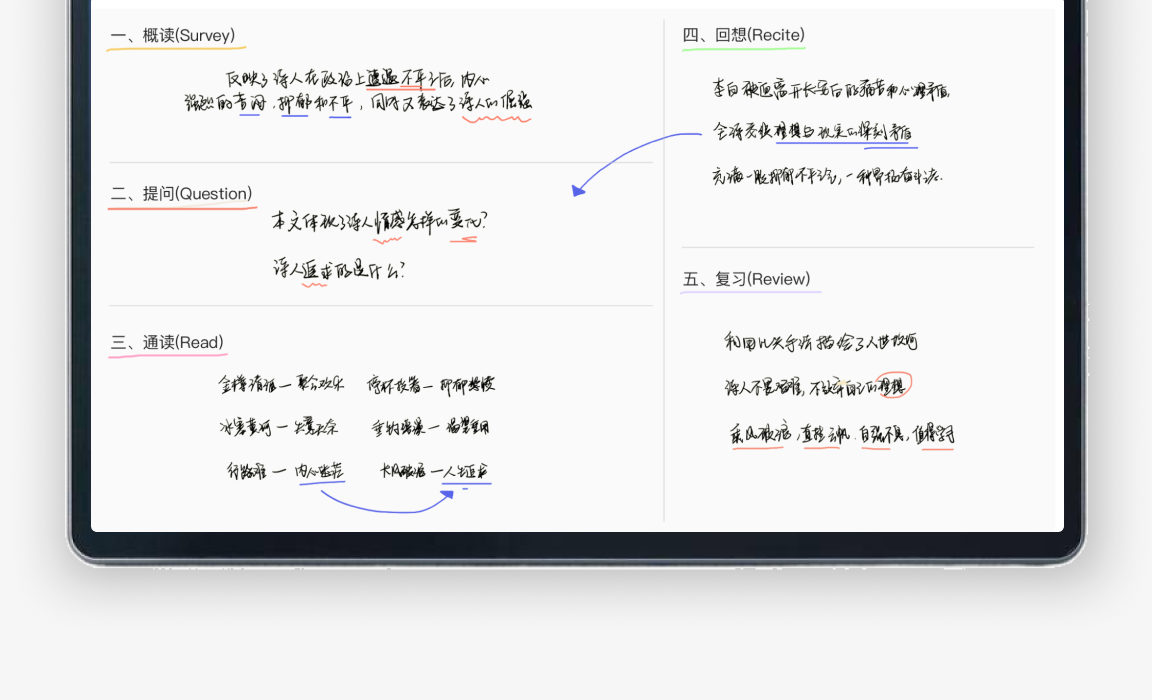 一、概读(Survey)
反映了诗人在政治上遭遇不平之后,内心
强烈的苦闷、抑郁和不平,同时又表达了诗人的倔强
二、提问(Question)
本文体现了诗人情感怎样的变化?
诗人追求的是什么?
三、通读(Read)
金樽清酒—聚会欢乐 停杯投箸—抑郁
冰塞黄河— 垂钓 —渴望重用
行路难—内心迷茫 长风破浪—人生追求
四、回想(Recite)
李白被迫离开长安后的痛苦和心理矛盾,
全诗交织理想与现实的深刻矛盾
充满一股抑郁不平之气,一种昂扬奋斗
五、复习(Review)
利用比 手法描绘了人世坎坷
诗人不畏艰难,不放弃自己的理想
乘风破浪,直挂云帆,自强不息,值得学习